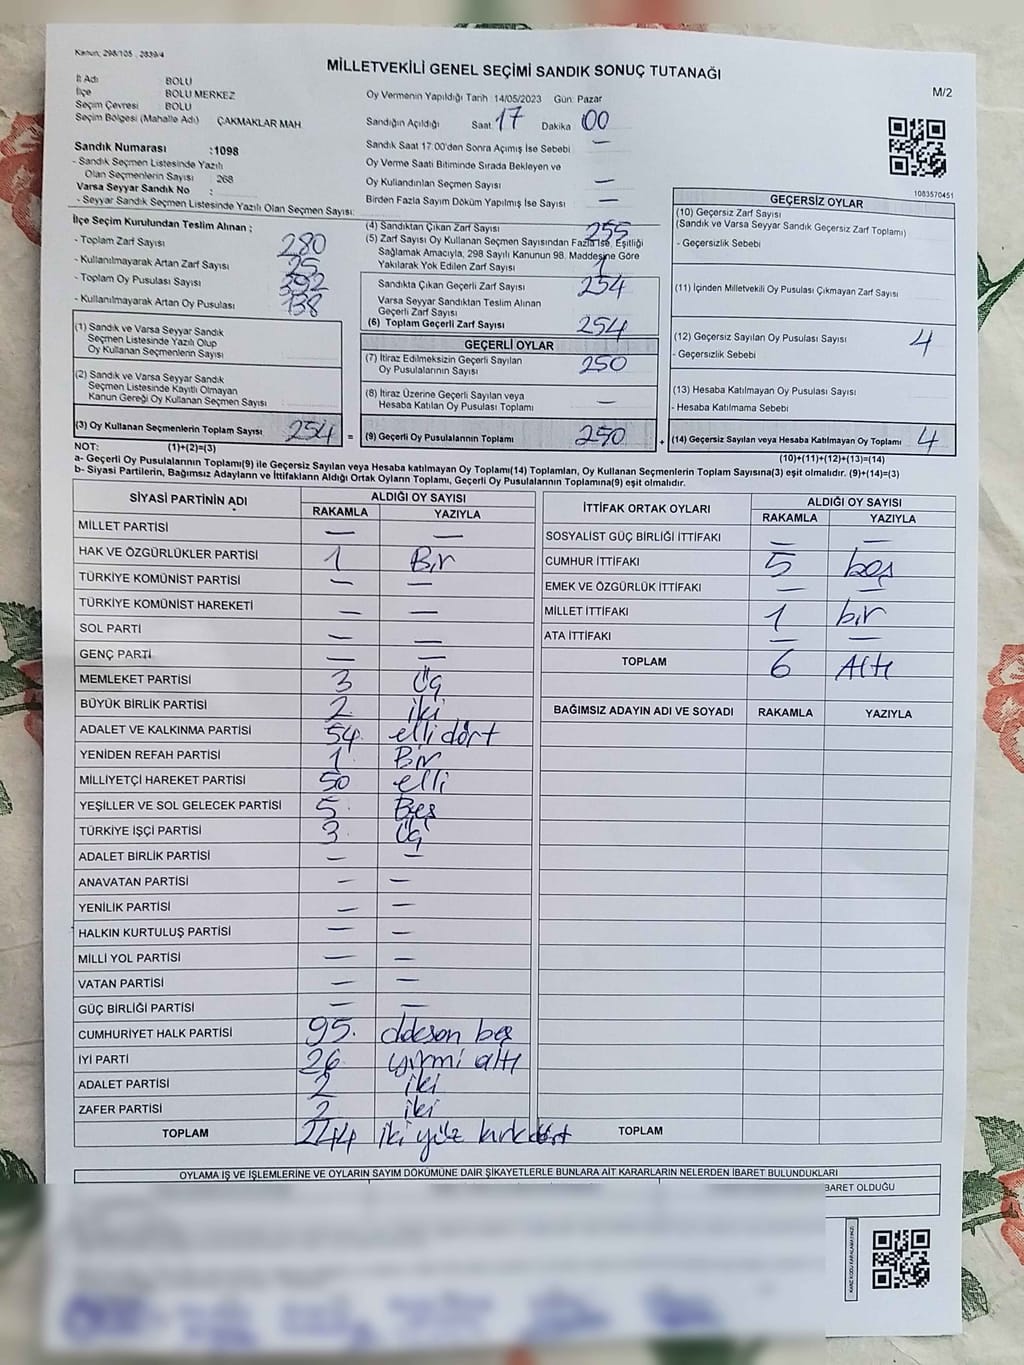 Kanun: 298/105 - 2839/4
MİLLETVEKİLİ GENEL SEÇİMİ SANDIK SONUÇ TUTANAĞI
M/2
İl Adı BOLU
İlçe BOLU MERKEZ
Seçim Çevresi BOLU
Seçim Bölgesi (Mahalle Adı) ÇAKMAKLAR MAH
Oy Vermenin Yapıldığı Tarih :14/05/2023 Gün: Pazar
Sandığın Açıldığı Saat 17 Dakika 00
Sandık Numarası :1098
- Sandık Seçmen Listesinde Yazılı
Olan Seçmenlerin Sayısı : 268
Varsa Seyyar Sandık No :
- Seyyar Sandık Seçmen Listesinde Yazılı Olan Seçmen Sayısı:
Sandık Saat 17:00'den Sonra Açımış İse Sebebi —
Oy Verme Saati Bitiminde Sırada Bekleyen ve
Oy Kullandırılan Seçmen Sayısı —
Birden Fazla Sayım Döküm Yapılmış İse Sayısı —
1083570451
İlçe Seçim Kurulundan Teslim Alınan ;
- Toplam Zarf Sayısı 280
- Kullanılmayarak Artan Zarf Sayısı 25
- Toplam Oy Pusulası Sayısı 392
- Kullanılmayarak Artan Oy Pusulası 138
(1) Sandık ve Varsa Seyyar Sandık
Seçmen Listesinde Yazılı Olup
Oy Kullanan Seçmenlerin Sayısı
(2) Sandık ve Varsa Seyyar Sandık
Seçmen Listesinde Kayıtlı Olmayan
Kanun Gereği Oy Kullanan Seçmen Sayısı
(3) Oy Kullanan Seçmenlerin Toplam Sayısı 254 =
(4) Sandıktan Çıkan Zarf Sayısı 255
(5) Zarf Sayısı Oy Kullanan Seçmen Sayısından Fazla İse, Eşitliği
Sağlamak Amacıyla, 298 Sayılı Kanunun 98. Maddesine Göre
Yakılarak Yok Edilen Zarf Sayısı 1
Sandıkta Çıkan Geçerli Zarf Sayısı 254
Varsa Seyyar Sandıktan Teslim Alınan
Geçerli Zarf Sayısı
(6) Toplam Geçerli Zarf Sayısı 254
GEÇERLİ OYLAR
(7) İtiraz Edilmeksizin Geçerli Sayılan
Oy Pusulalarının Sayısı 250
(8) İtiraz Üzerine Geçerli Sayılan veya
Hesaba Katılan Oy Pusulası Toplamı —
(9) Geçerli Oy Pusulalarının Toplamı 250 +
GEÇERSİZ OYLAR
(10) Geçersiz Zarf Sayısı
(Sandık ve Varsa Seyyar Sandık Geçersiz Zarf Toplamı)
- Geçersizlik Sebebi
(11) İçinden Milletvekili Oy Pusulası Çıkmayan Zarf Sayısı
(12) Geçersiz Sayılan Oy Pusulası Sayısı 4
- Geçersizlik Sebebi
(13) Hesaba Katılmayan Oy Pusulası Sayısı
- Hesaba Katılmama Sebebi
(14) Geçersiz Sayılan veya Hesaba Katılmayan Oy Toplamı 4
NOT: (1)+(2)=(3) (10)+(11)+(12)+(13)=(14)
a- Geçerli Oy Pusulalarının Toplamı(9) ile Geçersiz Sayılan veya Hesaba katılmayan Oy Toplamı(14) Toplamları, Oy Kullanan Seçmenlerin Toplam Sayısına(3) eşit olmalıdır. (9)+(14)=(3)
b- Siyasi Partilerin, Bağımsız Adayların ve İttifakların Aldığı Ortak Oyların Toplamı, Geçerli Oy Pusulalarının Toplamına(9) eşit olmalıdır.
SİYASİ PARTİNİN ADI ALDIĞI OY SAYISI
RAKAMLA YAZIYLA
MİLLET PARTİSİ — —
HAK VE ÖZGÜRLÜKLER PARTİSİ 1 Bir
TÜRKİYE KOMÜNİST PARTİSİ — —
TÜRKİYE KOMÜNİST HAREKETİ — —
SOL PARTİ — —
GENÇ PARTİ — —
MEMLEKET PARTİSİ 3 Üç
BÜYÜK BİRLİK PARTİSİ 2 iki
ADALET VE KALKINMA PARTİSİ 54 elli dört
YENİDEN REFAH PARTİSİ 1 Bir
MİLLİYETÇİ HAREKET PARTİSİ 50 elli
YEŞİLLER VE SOL GELECEK PARTİSİ 5 Beş
TÜRKİYE İŞÇİ PARTİSİ 3 Üç
ADALET BİRLİK PARTİSİ — —
ANAVATAN PARTİSİ — —
YENİLİK PARTİSİ — —
HALKIN KURTULUŞ PARTİSİ — —
MİLLİ YOL PARTİSİ — —
VATAN PARTİSİ — —
GÜÇ BİRLİĞİ PARTİSİ — —
CUMHURİYET HALK PARTİSİ 95. beş
İYİ PARTİ 26 yirmi altı
ADALET PARTİSİ 2 iki
ZAFER PARTİSİ 2 iki
TOPLAM 244 iki yüz kırk dört
İTTİFAK ORTAK OYLARI ALDIĞI OY SAYISI
RAKAMLA YAZIYLA
SOSYALİST GÜÇ BİRLİĞİ İTTİFAKI — —
CUMHUR İTTİFAKI 5 beş
EMEK VE ÖZGÜRLÜK İTTİFAKI — —
MİLLET İTTİFAKI 1 bir
ATA İTTİFAKI — —
TOPLAM 6 Altı
BAĞIMSIZ ADAYIN ADI VE SOYADI RAKAMLA YAZIYLA
TOPLAM
OYLAMA İŞ VE İŞLEMLERİNE VE OYLARIN SAYIM DÖKÜMÜNE DAİR ŞİKAYETLERLE BUNLARA AİT KARARLARIN NELERDEN İBARET BULUNDUKLARI
BARET OLDUĞU